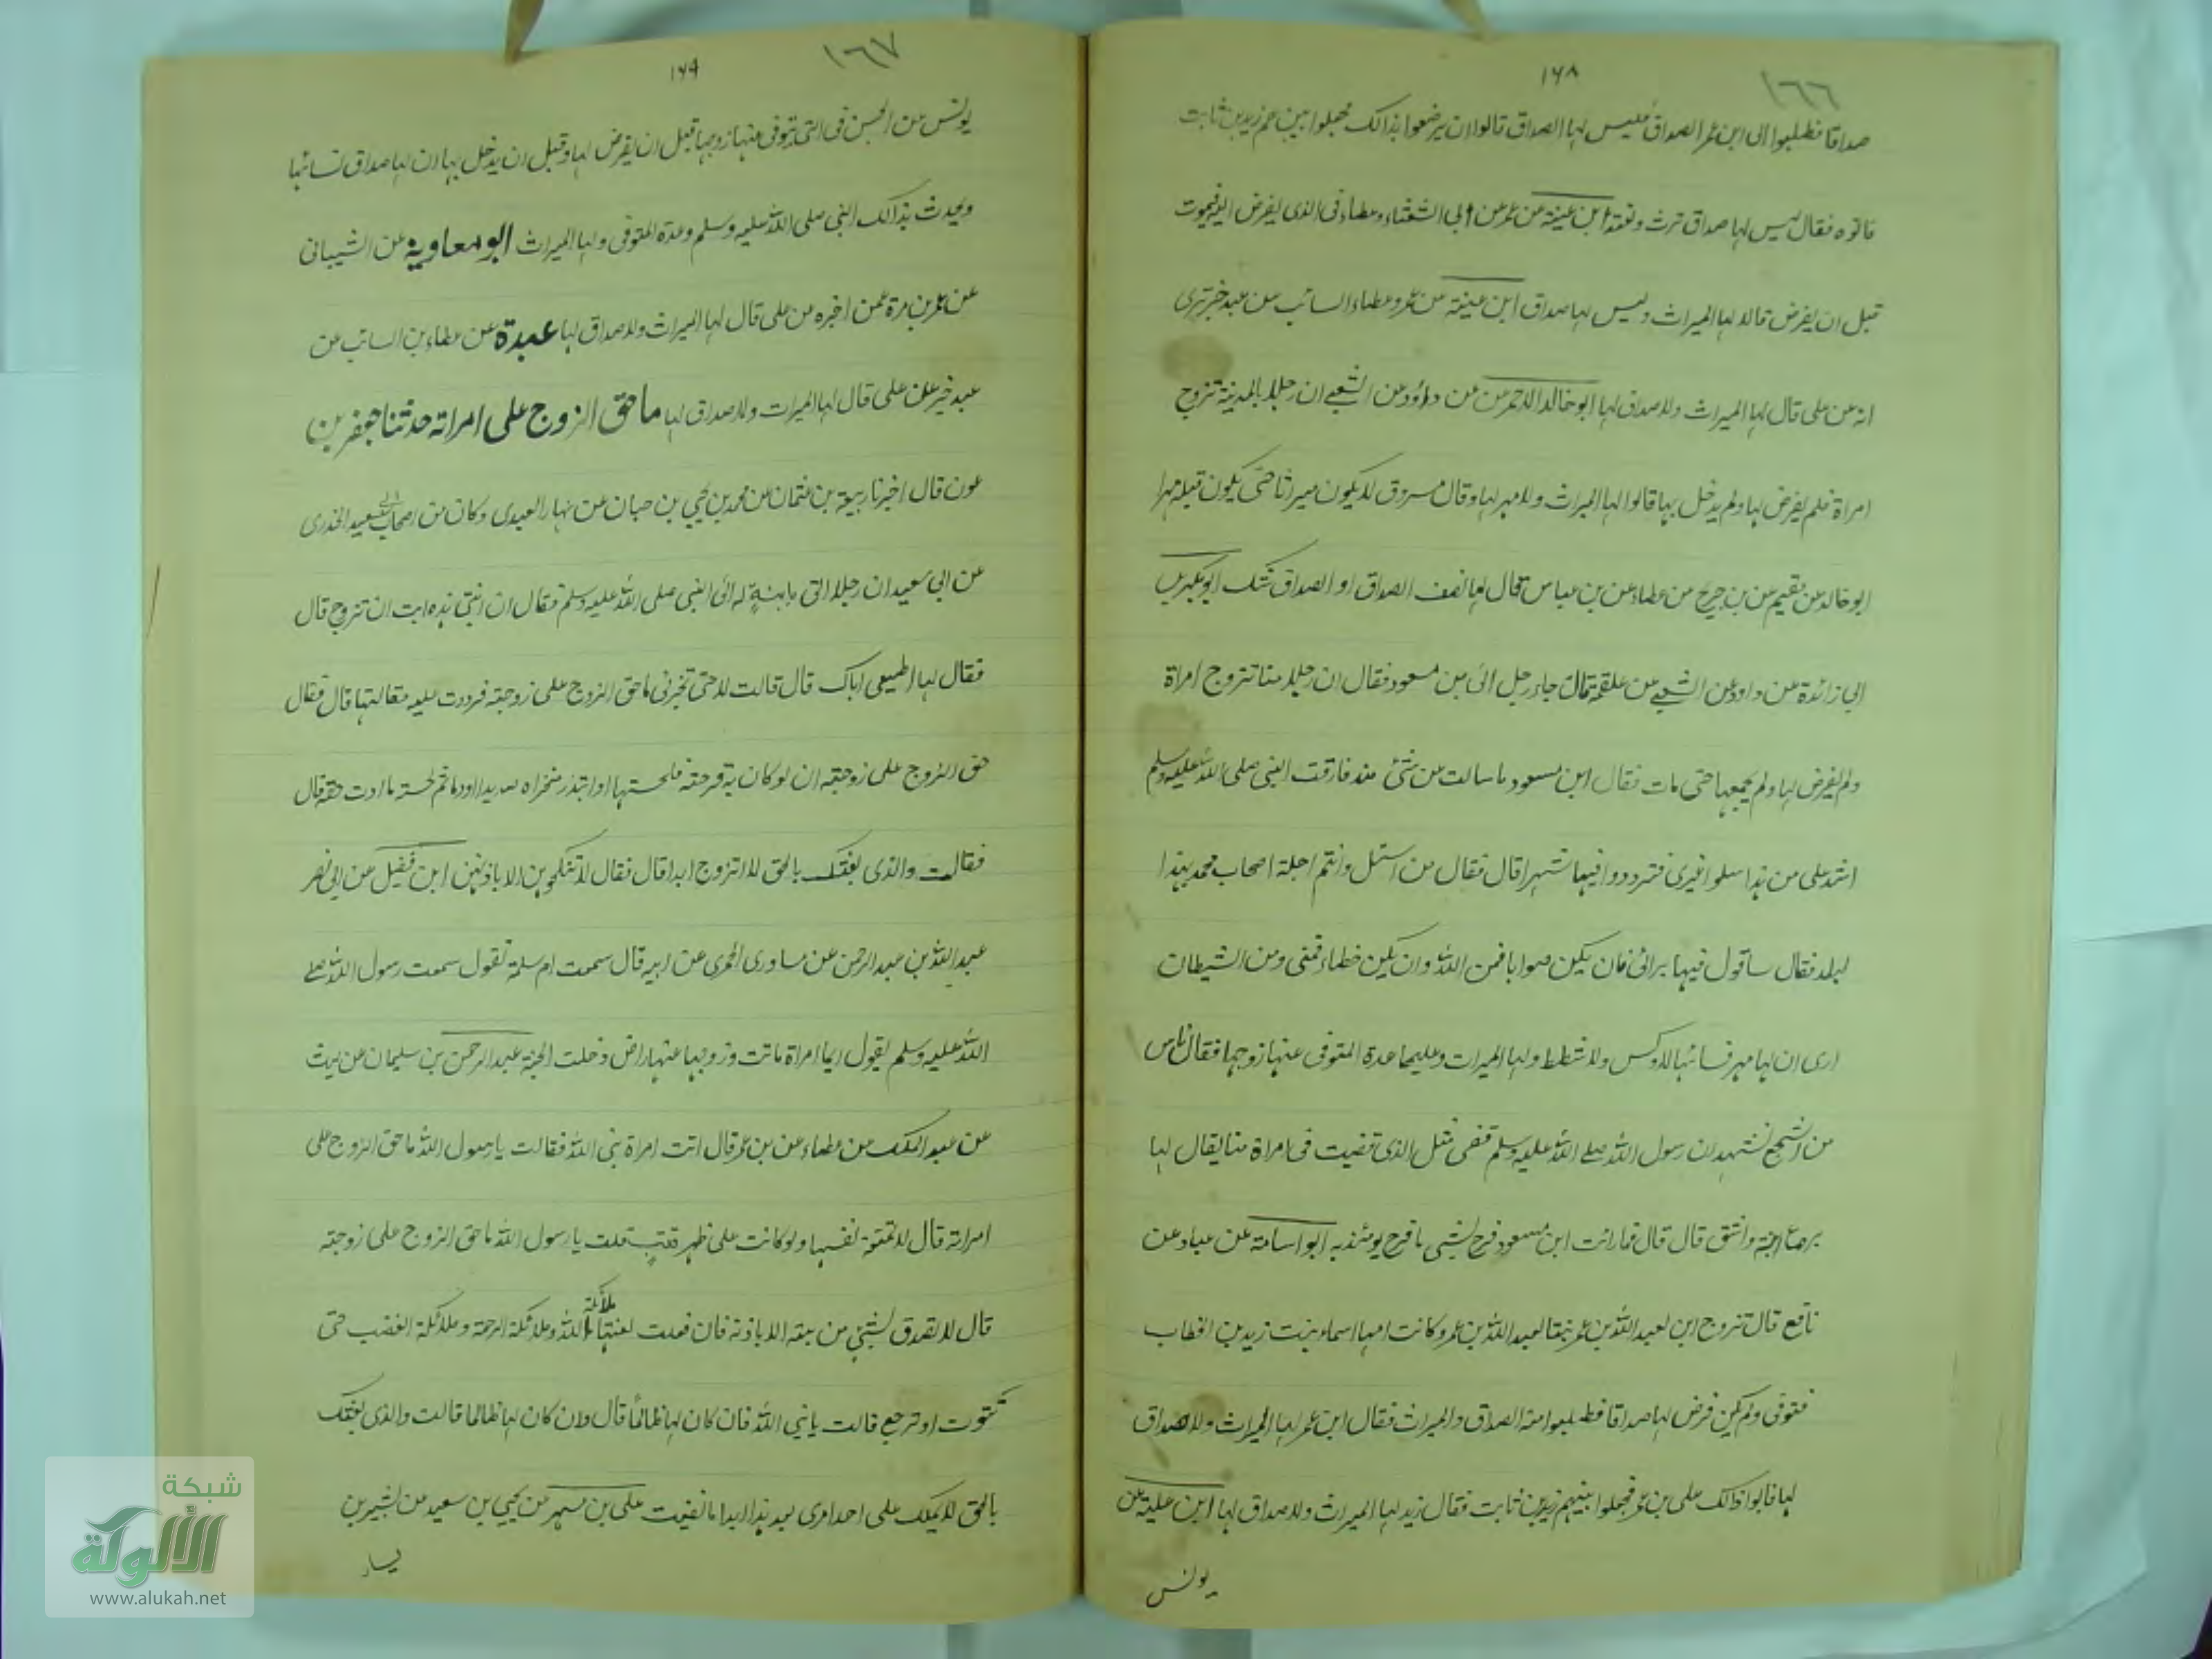 ١٦٦
١٦٨
صداقا فطلبوا الى ابن عمر الصداق فليس لها الصداق قالوا ان يرضعوا بذالك فجعلوا بينهم زيد بن ثابت
فاتوه فقال ليس لها صداق ترث وتعتد ابن عيينة عن عمر عن ابى الشعثاء وعطاء فى الذى يفرض اليه فيموت
قبل ان يفرض قالا لها الميراث وليس لها صداق ابن عيينة عن عمرو عطاء السائب عن عبد خير ترى
انه عن على قال لها الميراث ولا صداق لها ابو خالد الاحمر عن داؤد عن الشعبى ان رجلا بالمدينة تزوج
امراة فلم يفرض لها ولم يدخل بها قالوا لها الميراث ولا مهر لها وقال مسروق لا يكون ميراثا حتى يكون قبله مهرا
ابو خالد عن بن جريج عن عطاء عن بن عباس قال لها نصف الصداق او الصداق شك ابو بكر بن
ابى زائدة عن داود عن الشعبى عن علقمة قال جاء رجل الى بن مسعود فقال ان رجلا منا تزوج امراة
ولم يفرض لها ولم يجمعها حتى مات فقال ابن مسعود ما سالت عن شئ منذ فارقت النبى صلى الله عليه وسلم
اشد على من هذا سلوا غيرى فترددوا فيها شهرا قال فقال من اسئل وانتم اجلة اصحاب محمد بهذا
البلد فقال ساقول فيها برائى فان يكن صوابا فمن الله وان يكن خطاء فمنى ومن الشيطان
ارى ان لها مهر نسائها لا وكس ولا شطط ولها الميراث وعليها عدة المتوفى عنها زوجها فقال ناس
من اشجع نشهد ان رسول الله صلى الله عليه وسلم قضى مثل الذى قضيت فى امراة منا يقال لها
بروع ابنة واشق قال قال فما رائت ابن مسعود فرح بشى ما فرح يومئذ به ابو اسامة عن عباد عن
نافع قال تزوج ابن لعبد الله بن عمر بنتا لعبيد الله بن عمر وكانت امها اسماء بنت زيد بن الخطاب
فتوفى ولم يكن فرض لها صداقا فطلبوا منه الصداق والميراث فقال ابن عمر لها الميراث ولا صداق
لها فابوا ذالك على بن عمر فجعلوا بينهم زيد بن ثابت فقال زيد لها الميراث ولا صداق لها ابن علية عن
يونس
١٦٧
١٦٩
يونس عن الحسن فى التى توفى عنها زوجها قبل ان يفرض لها وقبل ان يدخل بها ان لها صداق نسائها
ويحدث بذالك النبى صلى الله عليه وسلم وعدة المتوفى ولها الميراث ابو معاوية عن الشيبانى
عن عمر بن مرة عمن اخبره عن على قال لها الميراث ولا صداق لها عبدة عن عطاء بن السائب عن
عبد خير عن على قال لها الميراث ولا صداق لها ما حق الزوج على امراته حدثنا جعفر بن
عون قال اخبرنا ربيعة بن عثمان عن محمد بن يحيى بن حبان عن نهار العبدى وكان من اصحاب ابى سعيد الخدرى
عن ابى سعيد ان رجلا اتى بابنةٍ له الى النبى صلى الله عليه وسلم فقال ان ابنتى هذه ابت ان تزوج قال
فقال لها اطيعى اباك قال قالت لا حتى تخبرنى ما حق الزوج على زوجته فرددت عليه مقالتها قال فقال
حق الزوج على زوجته ان لو كان به قرحة فلحستها او ابتدر منخراه صديدا او دما ثم لحسته ما ادت حقه قال
فقالت والذى بعثك بالحق لا اتزوج ابدا قال فقال لا تنكحوهن الا باذنهن ابن فضيل عن ابى نصر
عبد الله بن عبد الرحمن عن مساورى الحمرى عن ابيه قال سمعت ام سلمة تقول سمعت رسول الله صلى
الله عليه وسلم يقول ايما امراة ماتت وزوجها عنها راض دخلت الجنة عبد الرحمن بن سليمان عن ليث
عن عبد الملك عن عطاء عن بن عمر قال اتت امراة نبى الله فقالت يا رسول الله ما حق الزوج على
امراته قال لا تمنعه نفسها ولو كانت على ظهر قتب قلت يا رسول الله ما حق الزوج على زوجته
قال لا تصدق بشئ من بيته الا باذنه فان فعلت لعنتها ملائكة الله وملائكة الرحمة وملائكة الغضب حتى
تتوب او ترجع قالت يا نبى الله فان كان لها ظالما قال وان كان لها ظالما قالت والذى بعثك
بالحق لا يملك على احد امرى بعد هذا ابدا ما بقيت على بن مسهر عن يحيى بن سعيد عن بشير بن
يسار
شبكة
الألوكة
www.alukah.net